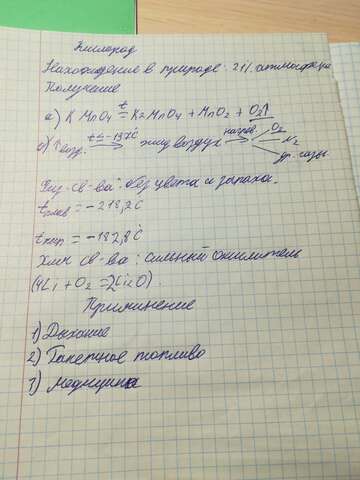 Кислород
Нахождение в природе: 21% атмосфера
Получение
а) KMnO4 t= K2MnO4 + MnO2 + O2↑
нагрев. O2
жид воздух → N2
др. газы.
Физ-св-ва: без цвета и запаха.
tплав = -218,2С
tкип = -182,8С
Хим св-ва: сильный окислитель
(4Li + O2 = 2Li2O).
Применение
1) Дыхание
2) Ракетное топливо
1) Медицина